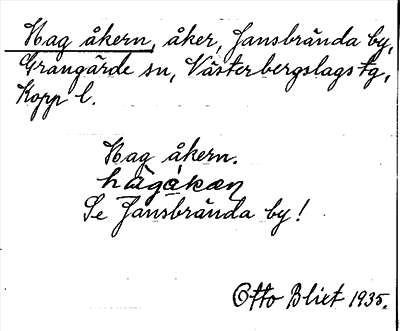 Hag åkern, åker, Jansbrända by,
Grangärde sn, Västerbergslags tg,
Kopp l.
Hag åkern.
hàgàkæṇ
Se Jansbrända by!
Otto Blixt 1935.